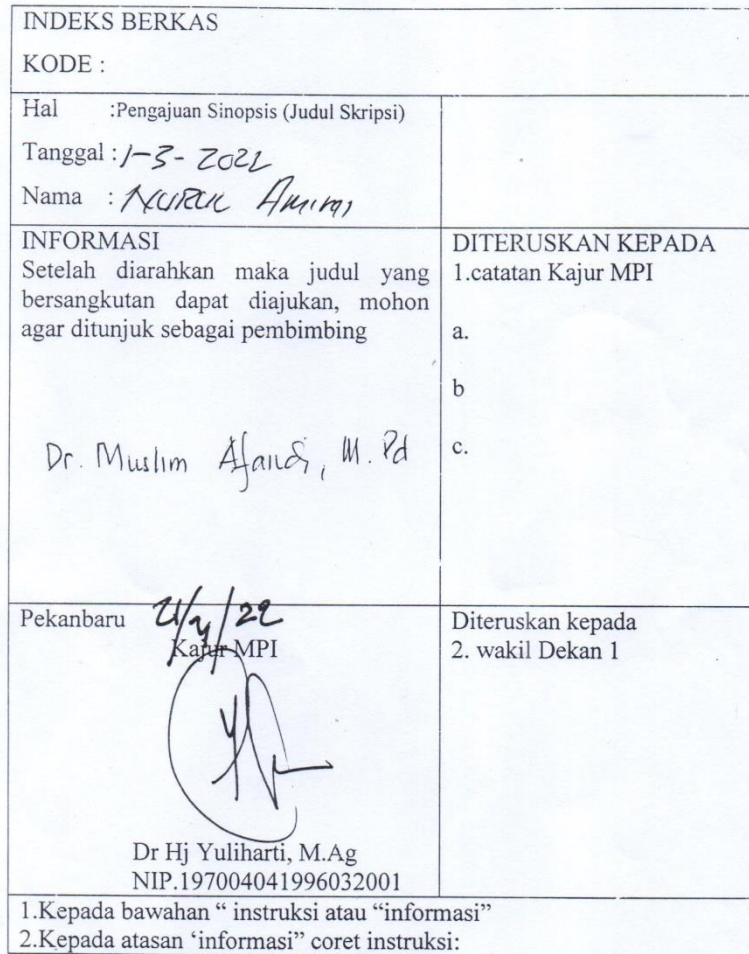 INDEKS BERKAS
KODE :
Hal :Pengajuan Sinopsis (Judul Skripsi)
Tanggal : 1-3-2022
Nama : NURUL Amimi
INFORMASI
Setelah diarahkan maka judul yang
bersangkutan dapat diajukan, mohon
agar ditunjuk sebagai pembimbing
Dr. Muslim Afandi, M.Pd
DITERUSKAN KEPADA
1.catatan Kajur MPI
a.
b
c.
Pekanbaru
Kajur MPI
Dr Hj Yuliharti, M.Ag
NIP.197004041996032001
Diteruskan kepada
2. wakil Dekan 1
1.Kepada bawahan “ instruksi atau “informasi”
2.Kepada atasan ‘informasi” coret instruksi: